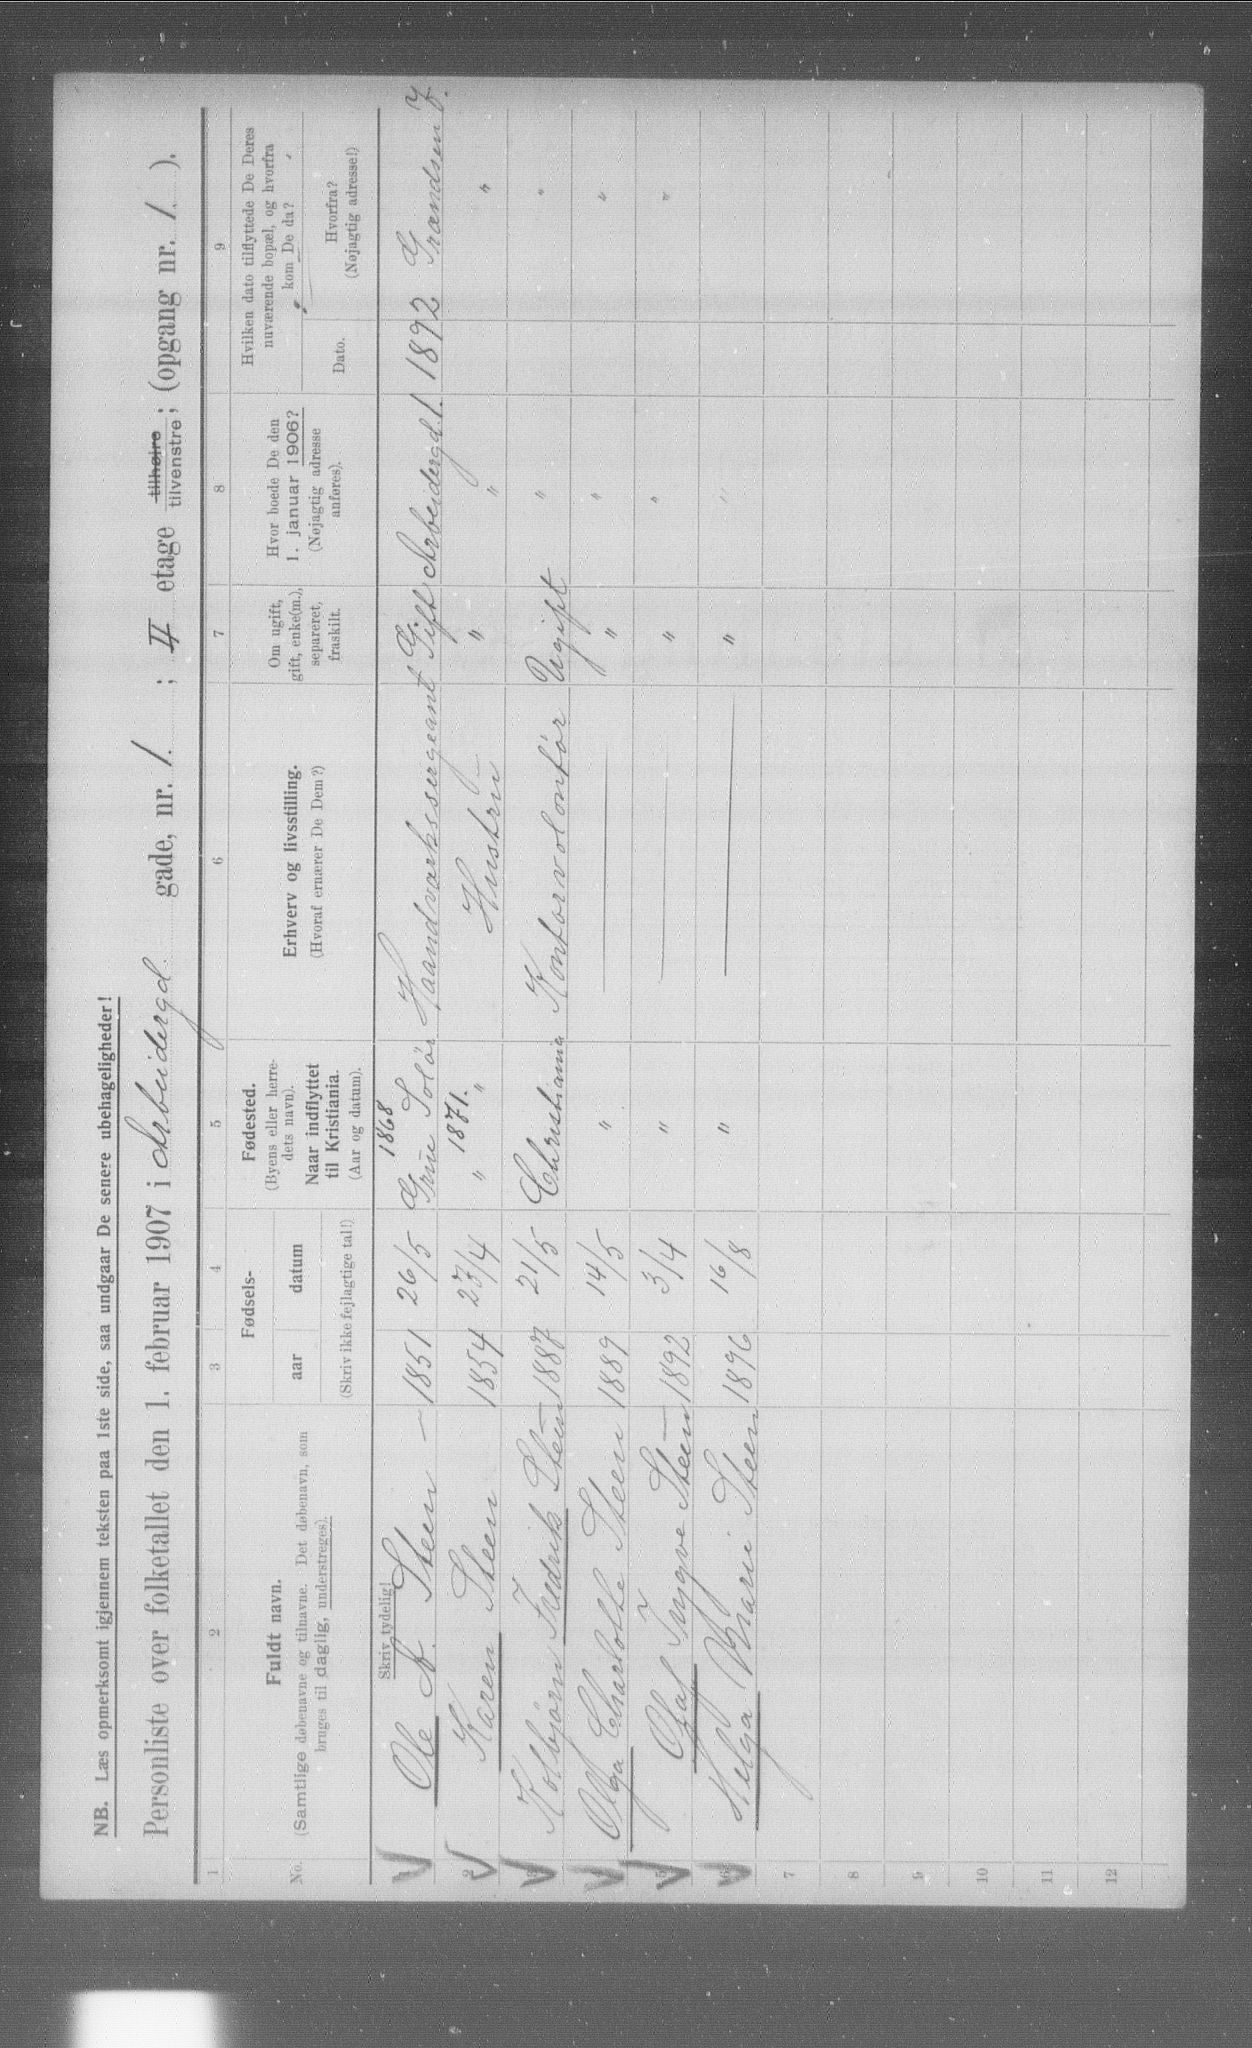 NB. Læs opmerksomt igjennem teksten paa 1ste side, saa undgaar De senere ubehageligheder!
Personliste over folketallet den 1. februar 1907 i Arbeidergd. gade, nr. 1. ; II etage tilhøire tilvenstre; (opgang nr. 1. ).
1 2 3 4 5 6 7 8 9
No.
Fuldt navn.
(Samtlige døbenavne og tilnavne. Det døbenavn, som
bruges til daglig, understreges).
Skriv tydelig!
Fødsels-
aar datum
(Skriv ikke fejlagtige tal!)
Fødested.
(Byens eller herre-
dets navn).
Naar indflyttet
til Kristiania.
(Aar og datum).
Erhverv og livsstilling.
(Hvoraf ernærer De Dem?)
Om ugift,
gift, enke(m.),
separeret,
fraskilt.
Hvor boede De den
1. januar 1906?
(Nøjagtig adresse
anføres).
Hvilken dato tilflyttede De Deres
nuværende bopæl, og hvorfra
kom De da?
Dato.
Hvorfra?
(Nøjagtig adresse!)
1 Ole A. Steen — 1851 26/5 1868 Grue Solør Haandværkssergeant Gift Arbeidergd. 1. 1892
2 Karen Steen 1854 23/4 " 1871. " Hustru " " "
3 Kolbjørn Fredrik Steen 1887 21/5 Christiania Kontorvolontør Ugift " "
4 Olga Charlotte Steen 1889 14/5 " — " " "
5 Olaf Yngve Steen 1892 3/4 " — " " "
6 Helga Marie Steen 1896 16/8 " — " "
7
8
9
10
11
12